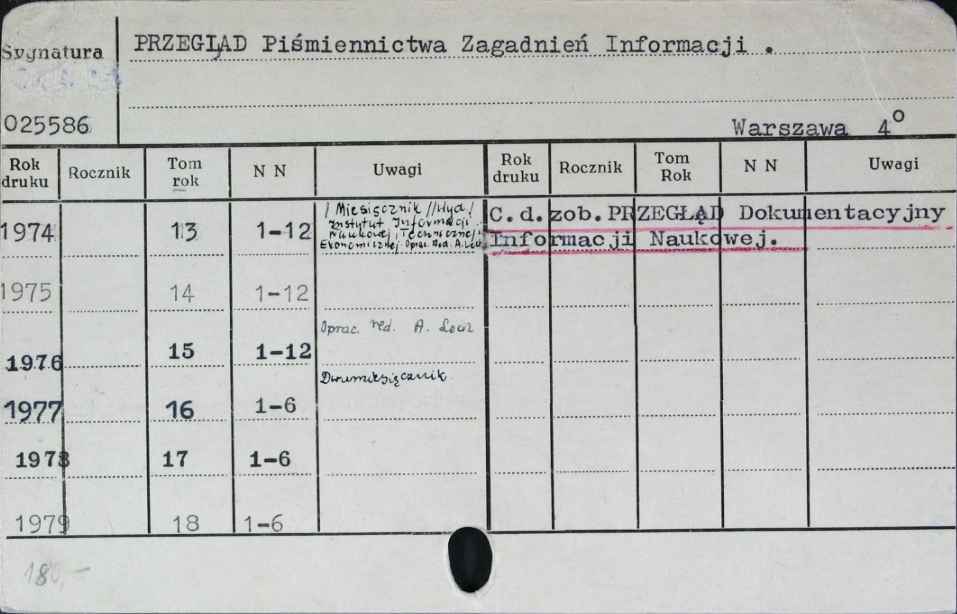 PRZEGLĄD Piśmiennictwa Zagadnień Informacji .
Sygnatura
025586
Warszawa 4°
Rok druku Rocznik Tom rok N N Uwagi Rok druku Rocznik Tom Rok N N Uwagi
1974 13 1-12
/ Miesięcznik // Wyd /
Instytut Informacji
Naukowej Technicznej i
Ekonomicznej Oprac. Red. A.
C.d.zob.PRZEGŁĄD Dokumentacyjny
Informacji Naukowej.
1975 14 1-12
Oprac. red. A.
1976 15 1-12
Dwumiesięcznik
1977 16 1-6
1978 17 1-6
1979 18 1-6
180,-